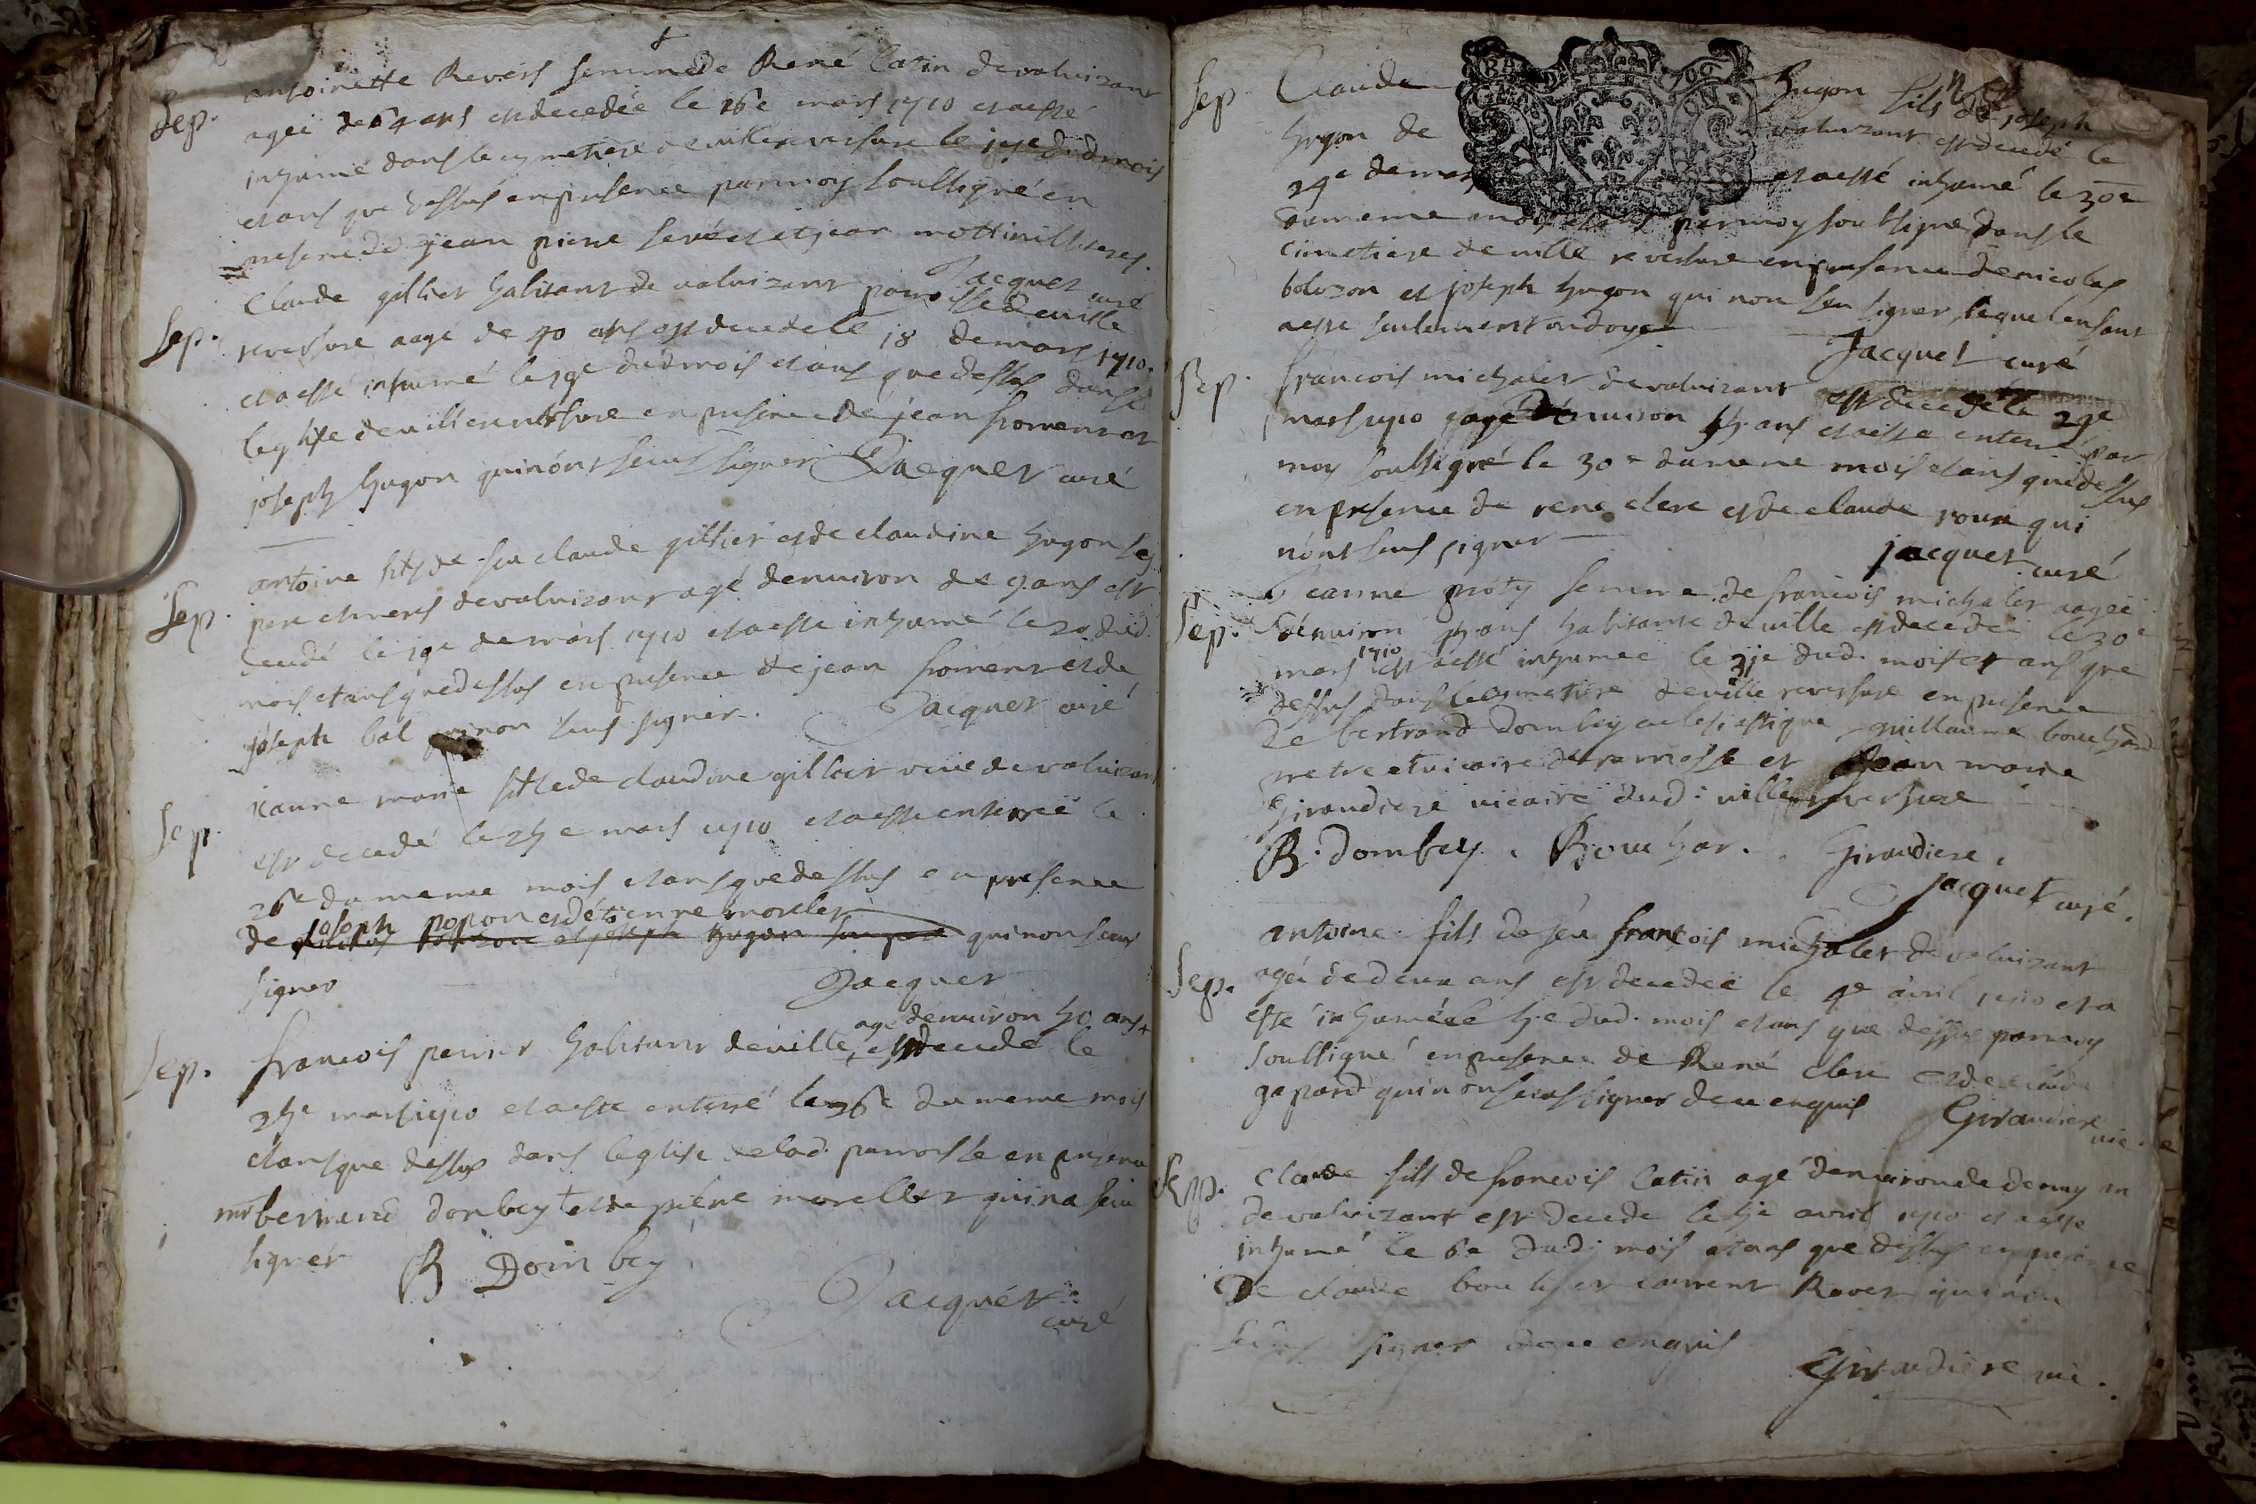 Sep.
antoinette Revers femme de René Catin de valuizant
agee de 64 ans est decedée le 16e mars 1710 et a esté
inhumé dans le cymetiere de villereversure le 17e dud mois
et ans que dessus en presence par moy soussigné en
presence de jean pierre et jean
Jacquet curé
Sep.
Claude gillier habitant de valuizant parroisse de ville
reversure aagé de 70 ans est decedé le 18 de mars 1710.
et a esté inhumé le 19e dud mois et ans que dessus dans
leglise de villereversure en presence de jean froment et
joseph hugon qui nont sceus signer Jacquet curé
Sep.
antoine fils de feu claude gillier et de claudine hugon ses
pere et meres de valuizant agé denuiron de 9 ans est
decedé le 19e de mars 1710 et a esté inhumé le 20 dud.
mois et ans que dessus en presence de jean froment et de
joseph bal qui non sceus signer. Jacquet curé
Sep.
jeanne marie fille de claudine gillier veuve de valuizant
est decedé le 25e mars 1710 et a esté enterree le
26e du meme mois et ans que dessus en presence
joseph popon et détienne morelet
de et joseph hugon qui non sceus
signer Jacquet
Sep.
agé denuiron 50 ans
francois perrier habitant de ville, est decedé le
25e mars 1710 et a esté enterré le 26e du meme mois
et ans que dessus dans leglise de lad. parroisse en presence
mr bertrand dombey et de pierre morellet qui na sceu
signer B Dombey
Jacquet
curé
Sep.
Claude hugon fils de joseph
hugon de valuizant est decedé le
29e de mars et a esté inhumé le 30e
du meme mois et ans par moy soubsigné dans le
cimetiere de ville reversure en presence de nicolas
bolozon et joseph hugon qui non sceu signer, lequel enfant
a esté seulement ondoyé
Jacquet curé
Sep.
francois michalet de valuizant est decedé le 29e
mars 1710 agé denuiron 45 ans et a esté enterré par
moy soussigné le 30e du meme mois et ans que dessus
en presence de rene clerc et de claude roux qui
nont sceus signer
jacquet curé
Sep.
Jeanne proty femme de francois michalet aagee
denuiron ans habitante de ville est decedee le 30e
mars 1710 et a esté inhumee le 31e dud. mois et ans que
dessus dans le cimetiere de ville reversure en presence
de bertrand dombey eclesiastique, guillaume bouchard
pretre et vicaire de ramasse et jean marie
Girandiere vicaire dud. villereversure
B. dombey. Bouchar. Girandiere.
jacquet curé.
Sep.
antoine fils de feu francois michalet de valuizant
agéé de deux ans est decedeé le 4e avril 1710 et a
esté inhumé le 5.e dud. mois et ans que dessus par moy
soussigné en presence de René clerc et de claude
gapard qui non sceus signer de ce enquis Girandiere
vic.
Sep.
claude fils de francois Catin agé denuiron de demy an
de valuizant est decede le 5e avril 1710 et a esté
inhumé le 6e dud. mois et ans que dessus en presence
De claude et laurent Rover qui non
sceus signer de ce enquis
Girandiere vic.